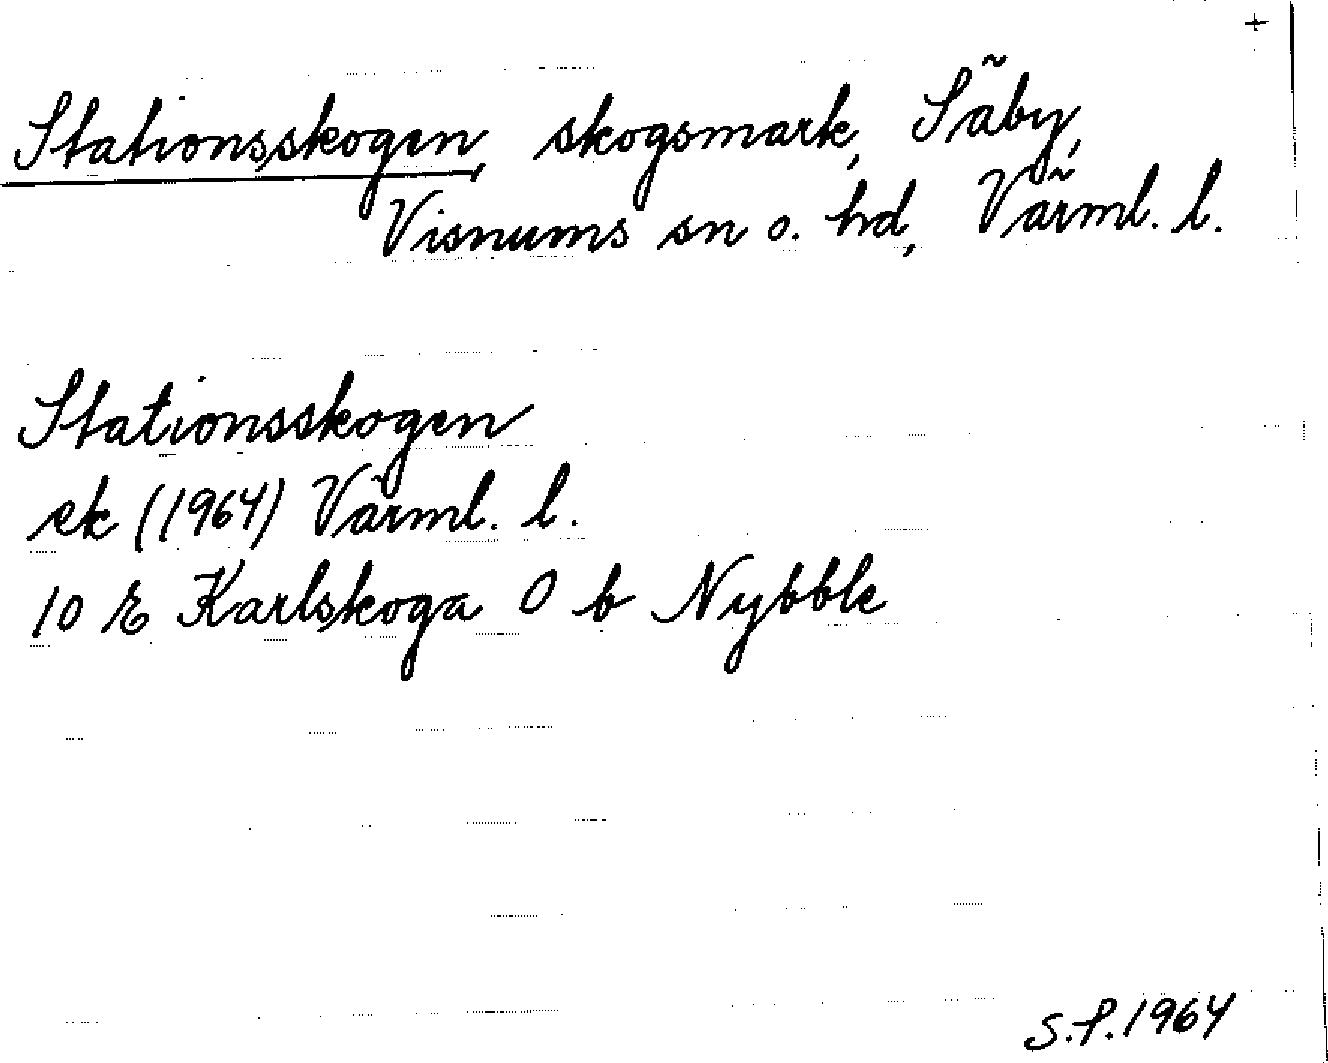 +
Stationsskogen, skogsmark, Säby,
Visnums sn o. hd, Värml. l.
Stationsskogen
ek (1964) Värml. l.
10 E Karlskoga O b Nybble
S.P. 1964